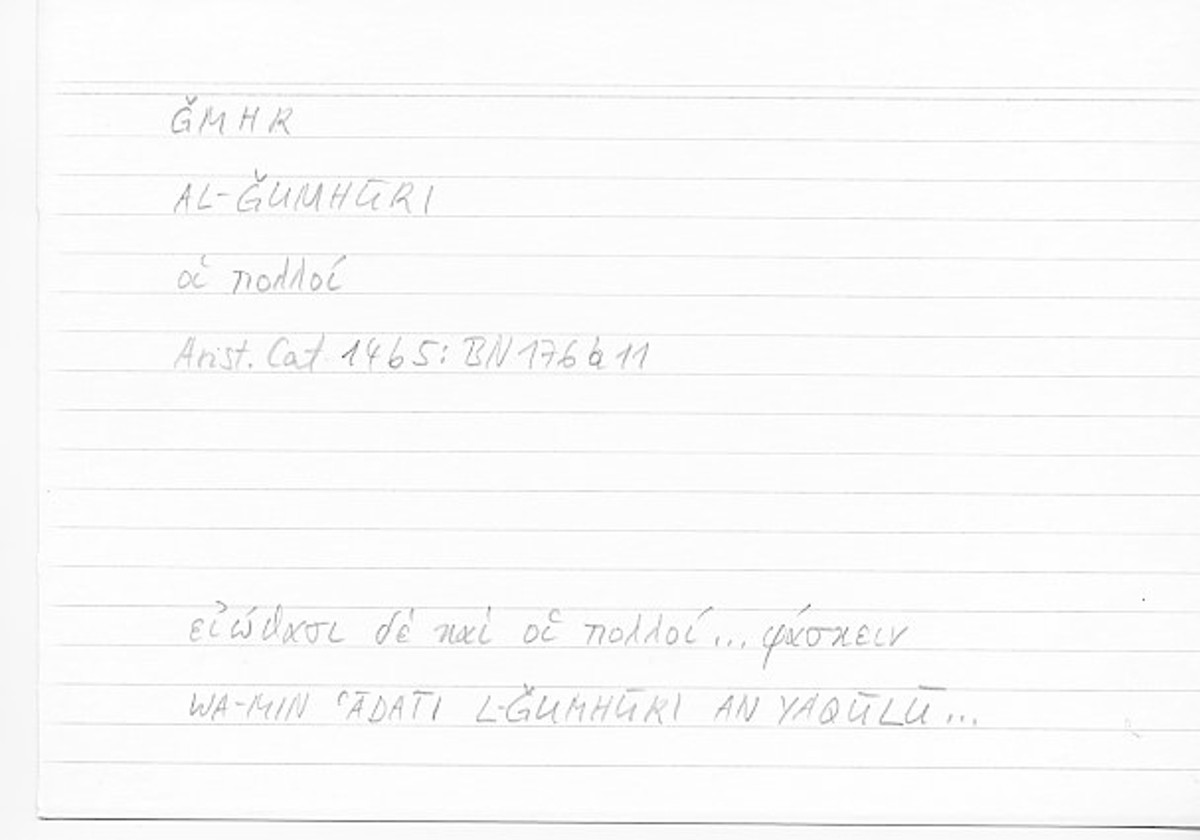 ǦMHR
AL-ǦUMHŪRI
οἱ πολλοί
Arist. Cat 14b5: BN 176b11
εἰώθασι δὲ καὶ οἱ πολλοί... φάσκειν
WA-MIN ʿĀDATI L-ǦUMHŪRI AN YAQŪLŪ...